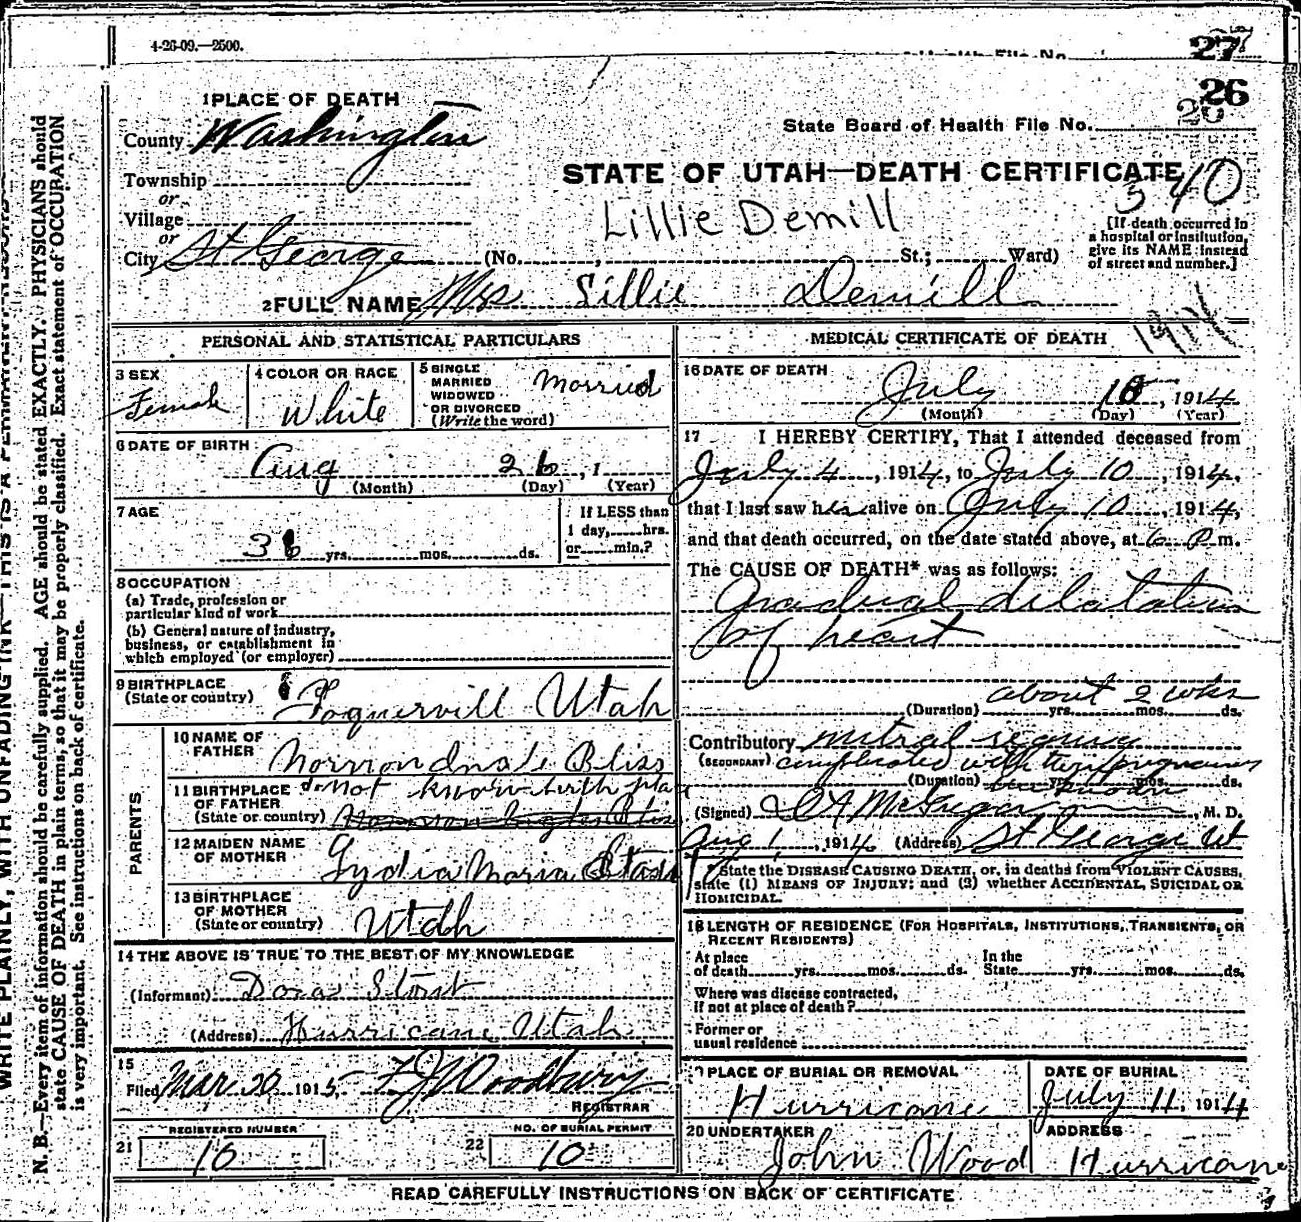 4-26-09.—2500.
27
26
1 PLACE OF DEATH
County Washington
State Board of Health File No.
Township
or
STATE OF UTAH—DEATH CERTIFICATE
340
Village
or
Lillie Demill
City St George (No. , St.; Ward)
[If death occurred in
a hospital or institution,
give its NAME instead
of street and number.]
2 FULL NAME Mrs Lillie Demill
1914
PERSONAL AND STATISTICAL PARTICULARS
3 SEX
Female
4 COLOR OR RACE
White
5 SINGLE
MARRIED
WIDOWED
OR DIVORCED
(Write the word)
Married
6 DATE OF BIRTH
Aug 26, 1
(Month) (Day) (Year)
7 AGE
36 yrs. mos. ds.
If LESS than
1 day, hrs.
or min.?
8 OCCUPATION
(a) Trade, profession or
particular kind of work
(b) General nature of industry,
business, or establishment in
which employed (or employer)
9 BIRTHPLACE
(State or country)
Toquervill Utah
PARENTS
10 NAME OF
FATHER
Bliss
11 BIRTHPLACE
OF FATHER
(State or country)
do not know birth place
12 MAIDEN NAME
OF MOTHER
Lydia Maria
13 BIRTHPLACE
OF MOTHER
(State or country)
Utah
14 THE ABOVE IS TRUE TO THE BEST OF MY KNOWLEDGE
(Informant) Dora
(Address) Hurricane Utah
15
Filed Mar 20 1915 F J Woodbury
REGISTRAR
REGISTERED NUMBER
21 10
NO. OF BURIAL PERMIT
22 10
MEDICAL CERTIFICATE OF DEATH
16 DATE OF DEATH
July 10, 1914
(Month) (Day) (Year)
17 I HEREBY CERTIFY, That I attended deceased from
July 4, 1914, to July 10, 1914,
that I last saw her alive on July 10, 1914,
and that death occurred, on the date stated above, at 6 P m.
The CAUSE OF DEATH* was as follows:
Gradual dilatation
of heart
about 2 wks
(Duration) yrs. mos. ds.
Contributory mitral
(SECONDARY) complicated with
(Duration) yrs. mos. ds.
(Signed) McGregor, M. D.
Aug 1, 1914 (Address) St George Ut
*State the DISEASE CAUSING DEATH, or, in deaths from VIOLENT CAUSES,
state (1) MEANS OF INJURY; and (2) whether ACCIDENTAL, SUICIDAL OR
HOMICIDAL.
18 LENGTH OF RESIDENCE (FOR HOSPITALS, INSTITUTIONS, TRANSIENTS, OR
RECENT RESIDENTS)
At place
of death yrs. mos. ds.
In the
State yrs. mos. ds.
Where was disease contracted,
if not at place of death?
Former or
usual residence
PLACE OF BURIAL OR REMOVAL
Hurricane
DATE OF BURIAL
July 11, 1914
20 UNDERTAKER
John Wood
ADDRESS
Hurricane
READ CAREFULLY INSTRUCTIONS ON BACK OF CERTIFICATE
N. B.—Every item of information should be carefully supplied. AGE should be stated EXACTLY. PHYSICIANS should
state CAUSE OF DEATH in plain terms, so that it may be properly classified. Exact statement of OCCUPATION
is very important. See instructions on back of certificate.
WRITE PLAINLY, WITH UNFADING INK—THIS IS A